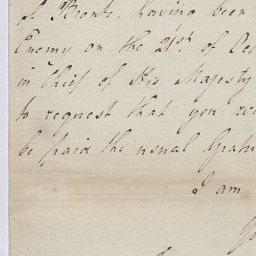 of Bronte, having been
Enemy on the 21st. of Oc
in Chief of His Majesty
to request that you
be paid the usual Gratu
I am